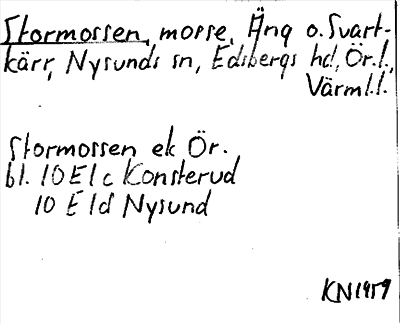 Stormossen, mosse, Äng o. Svart-
kärr, Nysunds sn, Edsbergs hd, Ör.l.,
Värml.l.
Stormossen ek Ör.
bl. 10E1c Konsterud
10 E1d Nysund
KN1959